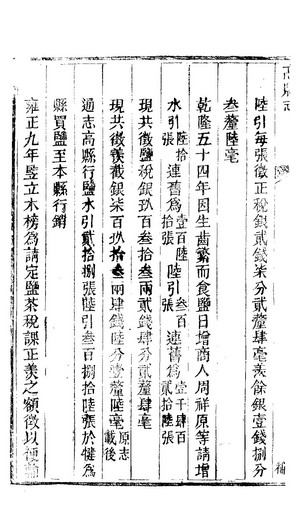 陸引每張徵正稅銀貳錢柒分貳釐肆毫羨餘銀壹錢捌分
叁釐陸毫
乾隆五十四年因生齒繁而食鹽日增商人周祥原等請增
水引陸拾張連舊爲壹百捌拾張陸引叁百張連舊爲壹千肆百貳拾張
現共徵稅銀玖百叁拾叁兩貳錢肆分肆毫
現共徵羨截銀柒百玖拾叁兩肆錢陸分壹釐陸毫原志載後
通志高縣行鹽水引貳拾捌張陸引叁百捌拾陸張於犍爲
縣買鹽至本縣行銷
雍正九年竪立木榜爲請定鹽茶稅課正羨之額徵以便輸